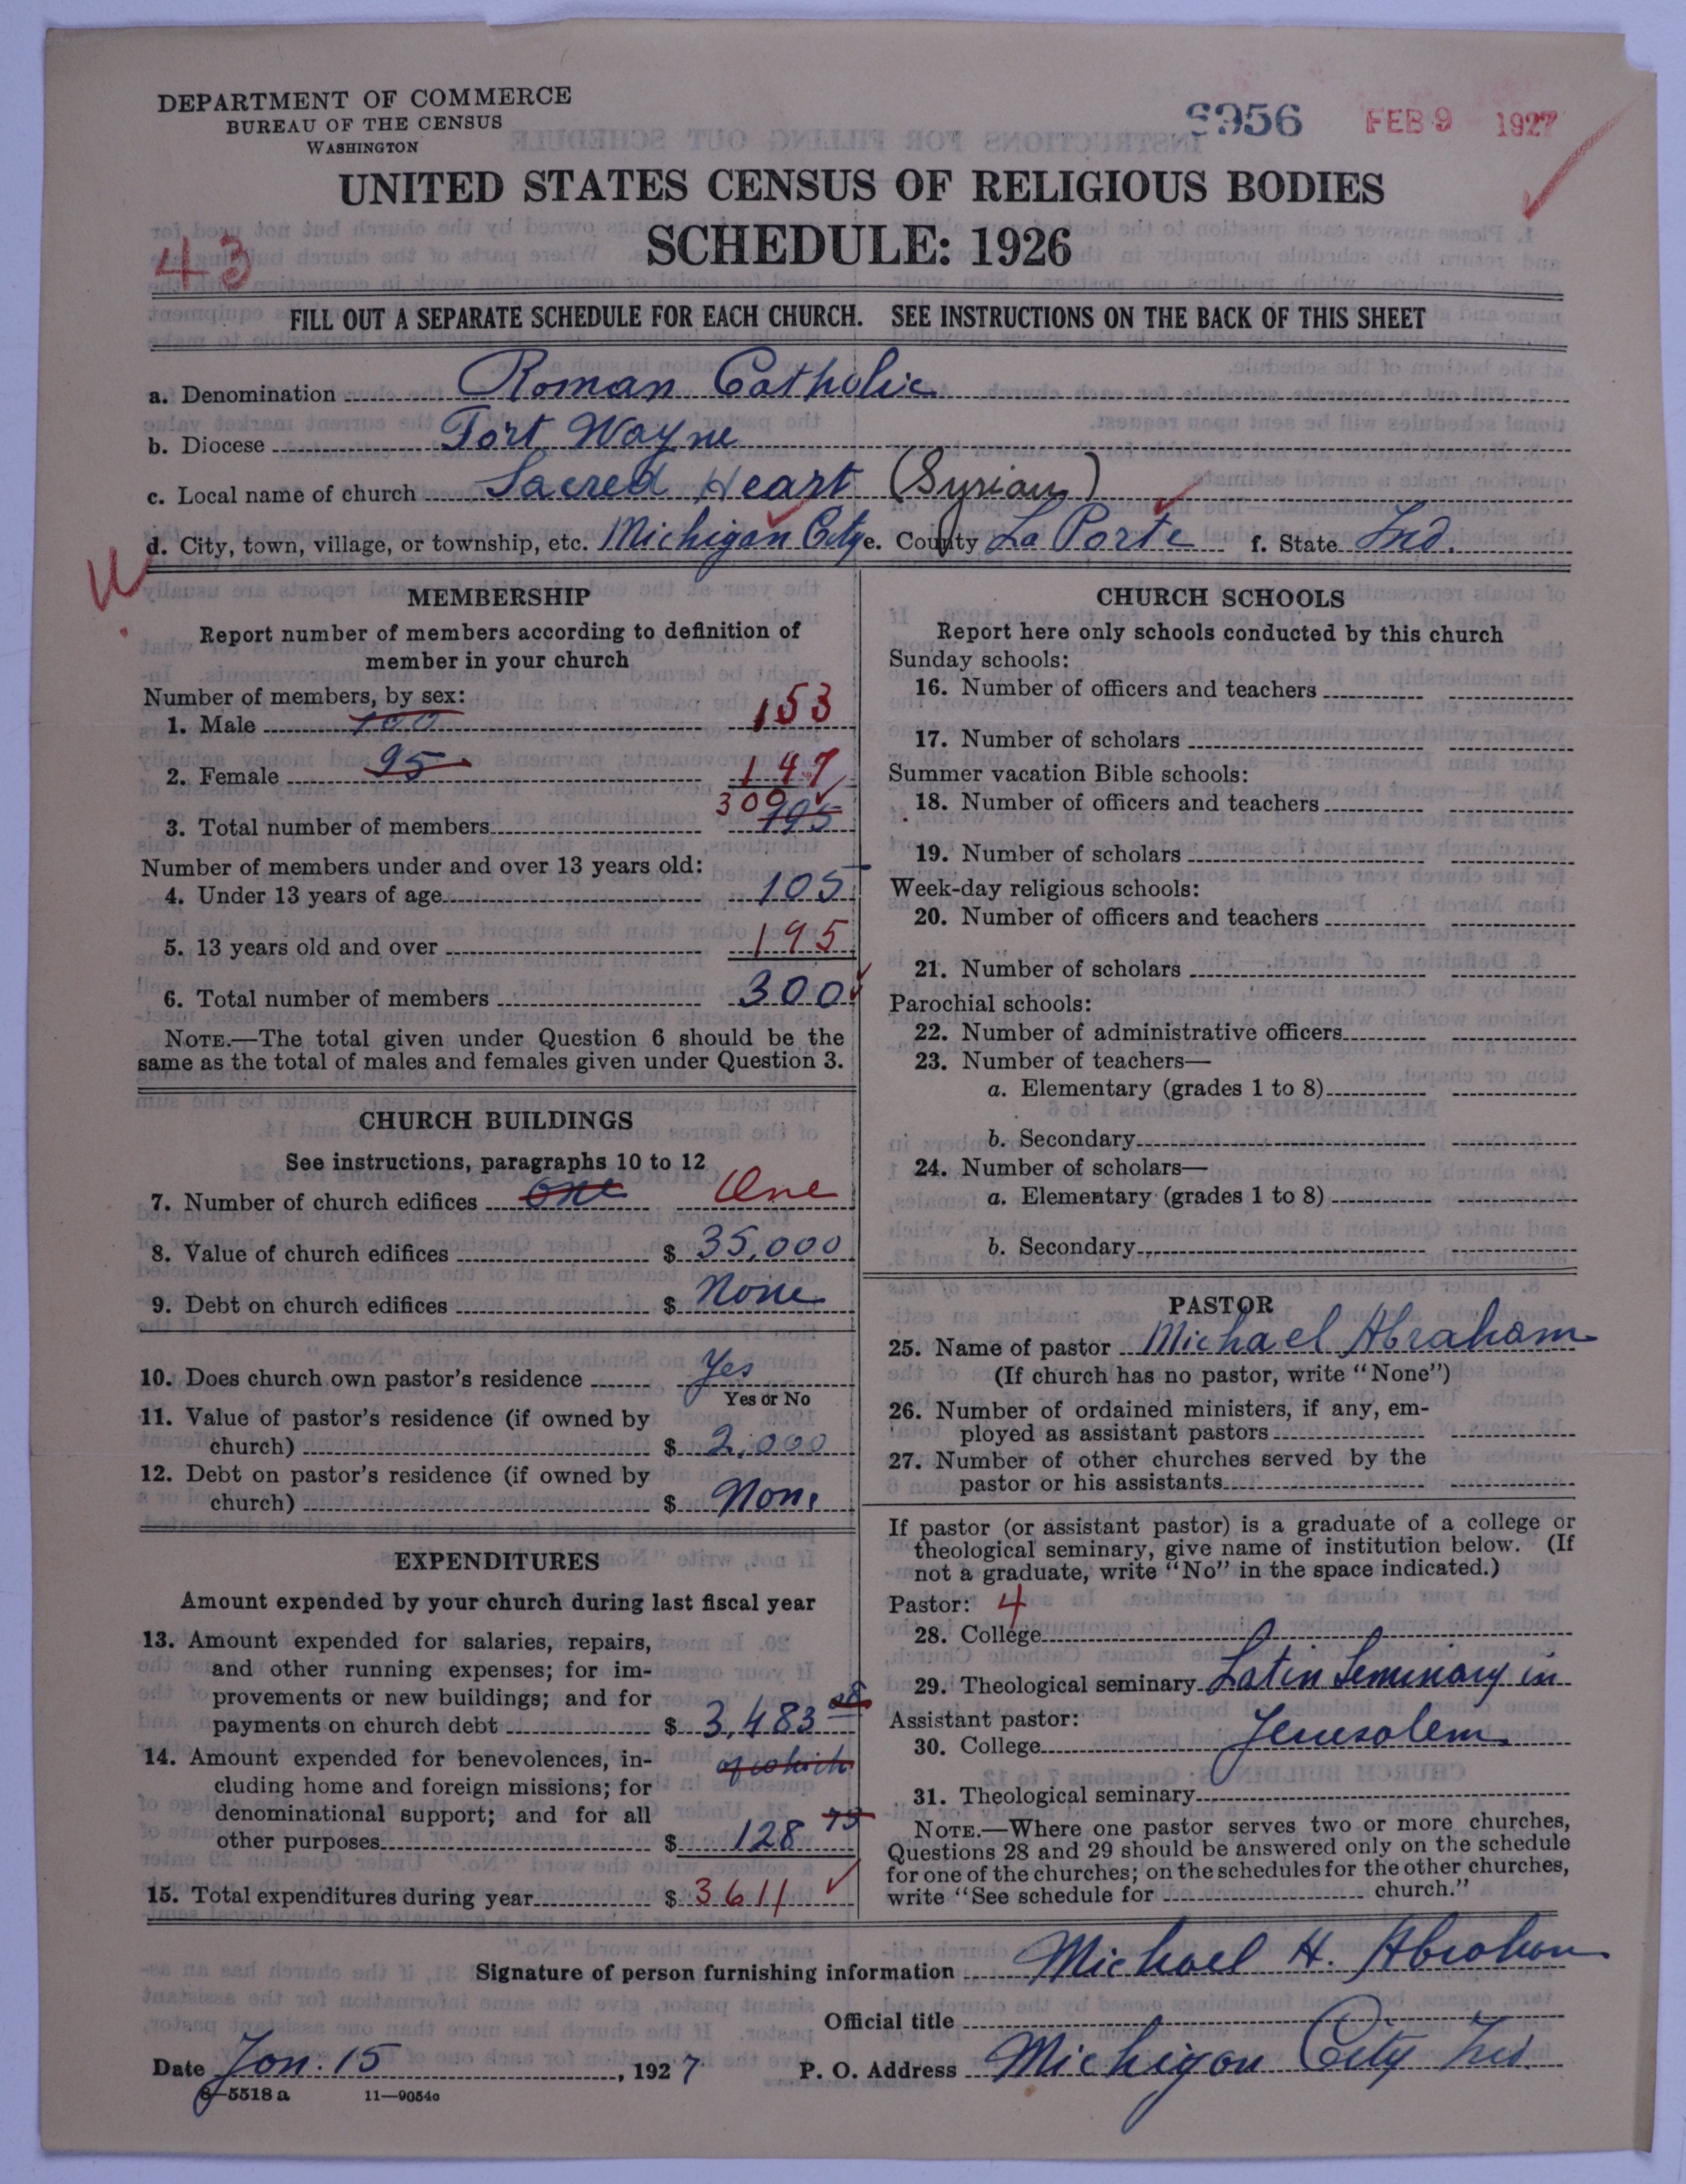 DEPARTMENT OF COMMERCE
BUREAU OF THE CENSUS
WASHINGTON
8956 FEB 9 1927
UNITED STATES CENSUS OF RELIGIOUS BODIES
SCHEDULE: 1926
43
FILL OUT A SEPARATE SCHEDULE FOR EACH CHURCH. SEE INSTRUCTIONS ON THE BACK OF THIS SHEET
a. Denomination Roman Catholic
b. Diocese Fort Wayne
c. Local name of church Sacred Heart (Syrian)
d. City, town, village, or township, etc. Michigan City e. County La Porte f. State Ind.
MEMBERSHIP
Report number of members according to definition of
member in your church
Number of members, by sex:
1. Male 100 153
2. Female 95 147
300
3. Total number of members 195
Number of members under and over 13 years old:
4. Under 13 years of age 105
5. 13 years old and over 195
6. Total number of members 300
NOTE.—The total given under Question 6 should be the
same as the total of males and females given under Question 3.
CHURCH BUILDINGS
See instructions, paragraphs 10 to 12
7. Number of church edifices one One
8. Value of church edifices $ 35,000
9. Debt on church edifices $ None
10. Does church own pastor's residence Yes
Yes or No
11. Value of pastor's residence (if owned by
church) $ 2,000
12. Debt on pastor's residence (if owned by
church) $ None
EXPENDITURES
Amount expended by your church during last fiscal year
13. Amount expended for salaries, repairs,
and other running expenses; for im-
provements or new buildings; and for
payments on church debt $ 3,483
14. Amount expended for benevolences, in- of which
cluding home and foreign missions; for
denominational support; and for all
other purposes $ 128 75
15. Total expenditures during year $ 3611
CHURCH SCHOOLS
Report here only schools conducted by this church
Sunday schools:
16. Number of officers and teachers
17. Number of scholars
Summer vacation Bible schools:
18. Number of officers and teachers
19. Number of scholars
Week-day religious schools:
20. Number of officers and teachers
21. Number of scholars
Parochial schools:
22. Number of administrative officers
23. Number of teachers—
a. Elementary (grades 1 to 8)
b. Secondary
24. Number of scholars—
a. Elementary (grades 1 to 8)
b. Secondary
PASTOR
25. Name of pastor Michael Abraham
(If church has no pastor, write "None")
26. Number of ordained ministers, if any, em-
ployed as assistant pastors
27. Number of other churches served by the
pastor or his assistants
If pastor (or assistant pastor) is a graduate of a college or
theological seminary, give name of institution below. (If
not a graduate, write "No" in the space indicated.)
Pastor: 4
28. College
29. Theological seminary Latin Seminary in
Assistant pastor:
30. College Jerusolem
31. Theological seminary
NOTE.—Where one pastor serves two or more churches,
Questions 28 and 29 should be answered only on the schedule
for one of the churches; on the schedules for the other churches,
write "See schedule for church."
Signature of person furnishing information Michael H. Abraham
Official title
Date Jan. 15, 1927 P. O. Address Michigan City Ind.
8—5518 a 11—9054a